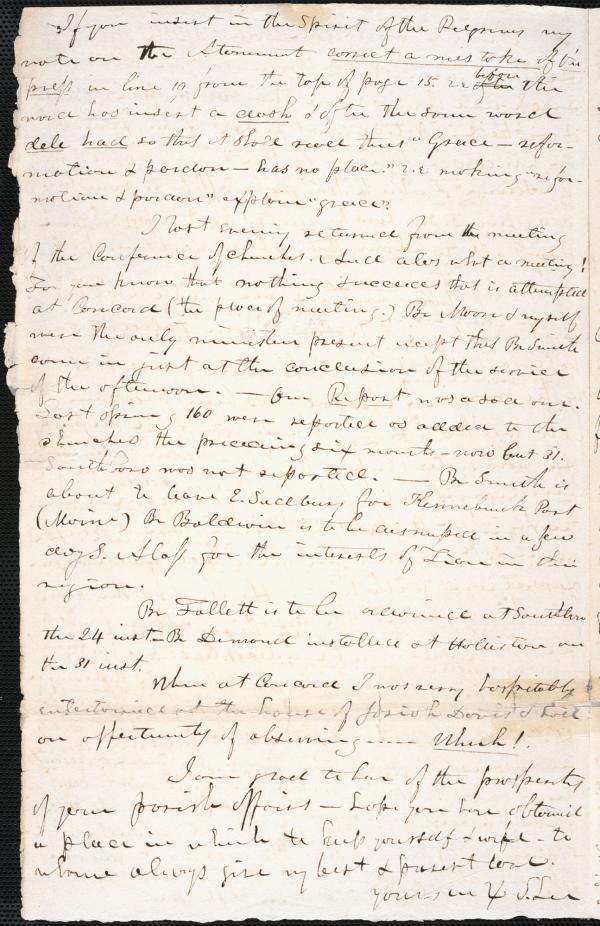 If you insert in the Spirit of the Pilgrims my
note on the Atonement correct a mistake of the
press in line 10 from the top of page 15. i.e before the
word has insert a dash & after the same word
dele had so that it shall read thus "Grace — refor-
mation & pardon — has no place." i.e making "refor-
mation & pardon" explain "grace"
I last evening returned from the meeting
of the Conference of churches. And alas what a meeting!
For you know that nothing succeeds that is attempted
at Concord (the place of meeting.) Br Moore & myself
were the only ministers present except that Br Smith
came in just at the conclusion of the service
of the afternoon. — Our Report was a sad one.
Last spring 160 were reported as added to the
churches the preceding six months - now but 31.
Southboro was not reported. — Br Smith is
about to leave E. Sudbury for Kennebunk Port
(Maine) Br Baldwin is to be dismissed in a few
days. Alas for the interests of Zion in this
region.
Br Follett is to be ordained at Southboro
the 24 inst - Br Demond installed at Holliston on
the 31 inst.
When at Concord I was very hospitably
entertained at the house of Josiah Davis & had
an opportunity of observing —— Which!
I am glad to hear of the prosperity
of your parish affairs — hope you have obtained
a place in which to keep yourself & wife - to
whom always give my best & purest love.
yours in X S. Lee